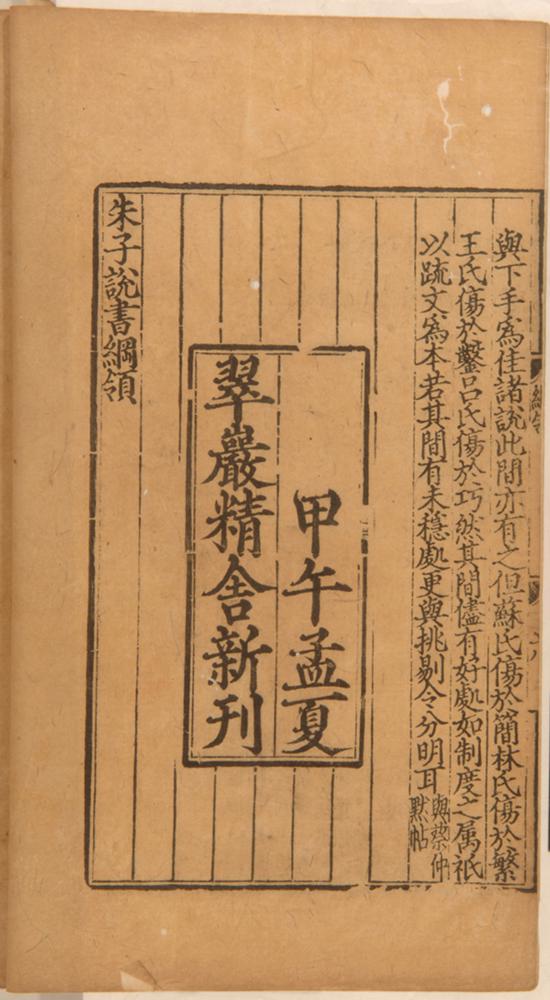 與下手為佳諸說此間亦有之但蘇氏傷於簡林氏傷於繁
王氏傷於鑿呂氏傷於巧然其間儘有好處如制度之属祇
以疏文為本若其間有未穩處更與挑剔令分明耳與蔡仲
默帖
甲午孟夏
翠巖精舍新刊
朱子說書綱領